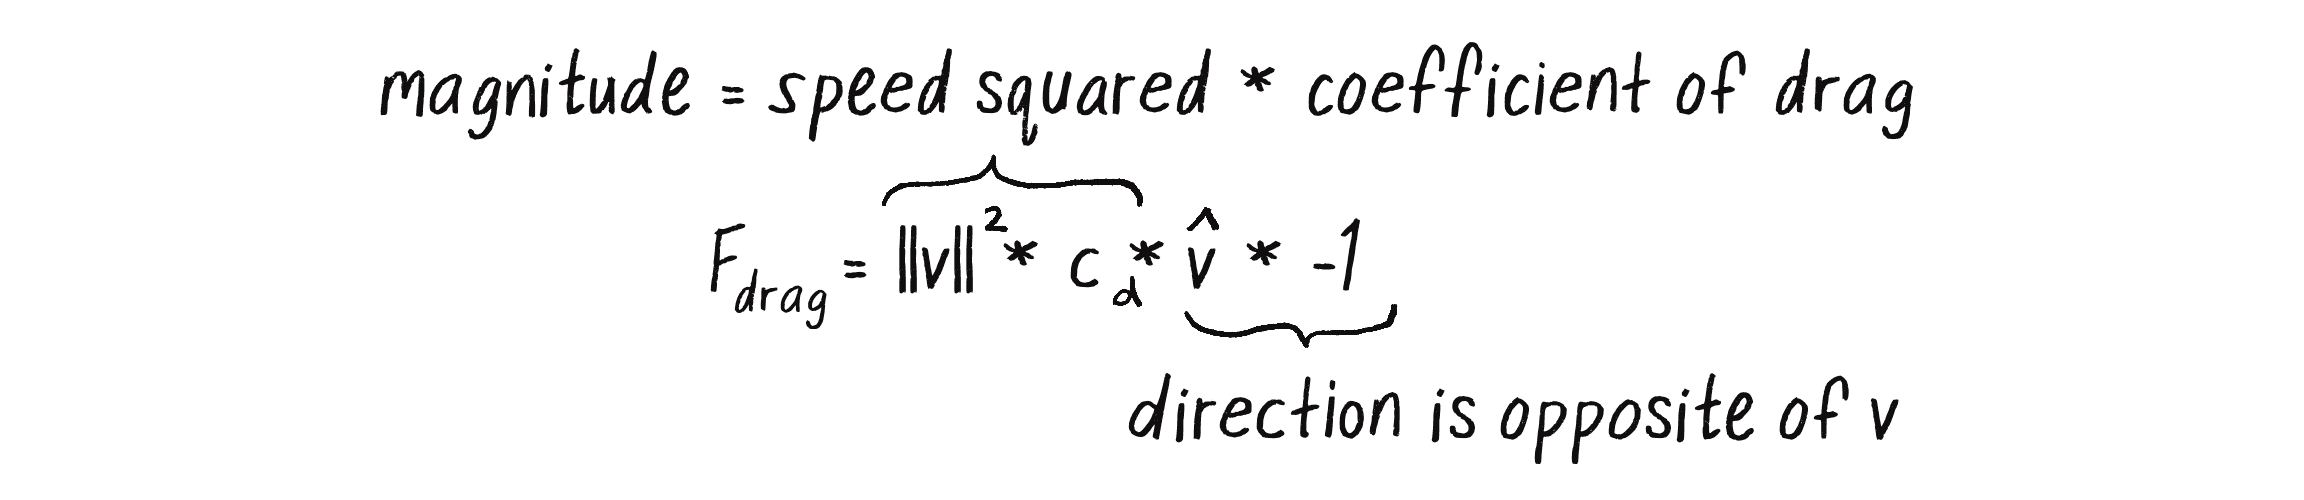 magnitude = speed squared * coefficient of drag
F_drag = ||v||² * c_d * v̂ * -1
direction is opposite of v